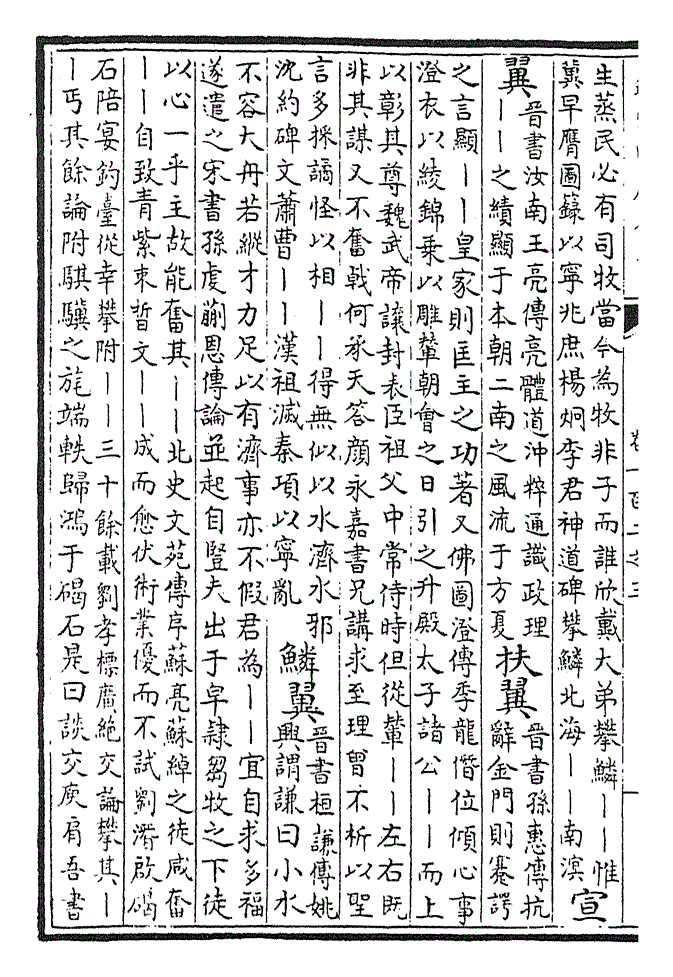 生蒸民必有司牧當今為牧非子而誰欣戴大弟攀鱗｜｜惟
冀早膺圖籙以寧兆庶楊炯李君神道碑攀鱗北海｜｜南溟
宣翼
晉書汝南王亮傳亮體道沖粹通識政理
｜｜之績顯于本朝二南之風流于方夏
扶翼
晉書孫惠傳抗
辭金門則蹇諤
之言顯｜｜皇家則匡主之功著又佛圖澄傳季龍僭位傾心事
澄衣以綾錦乗以雕輦朝會之日引之升殿太子諸公｜｜而上
以彰其尊魏武帝讓封表臣祖父中常侍時但從輦｜｜左右既
非其謀又不奮戟何承天答顔永嘉書兄講求至理曾不析以聖
言多採譎怪以相｜｜得無似以水濟水邪
沈約碑文蕭曹｜｜漢祖滅秦項以寧亂
鱗翼
晉書桓謙傳姚
興謂謙曰小水
不容大舟若縱才力足以有濟事亦不假君為｜｜宜自求多福
遂遣之宋書孫虔蒯恩傳論並起自豎夫出于皁隸芻牧之下徒
以心一乎主故能奮其｜｜北史文苑傳序蘇亮蘇綽之徒咸奮
｜｜自致青紫束晳文｜｜成而愈伏術業優而不試劉潛啟碣
石陪宴釣臺從幸攀附｜｜三十餘載劉孝標廣絶交論攀其｜
｜丐其餘論附騏驥之旄端軼歸鴻于碣石是曰談交庾肩吾書